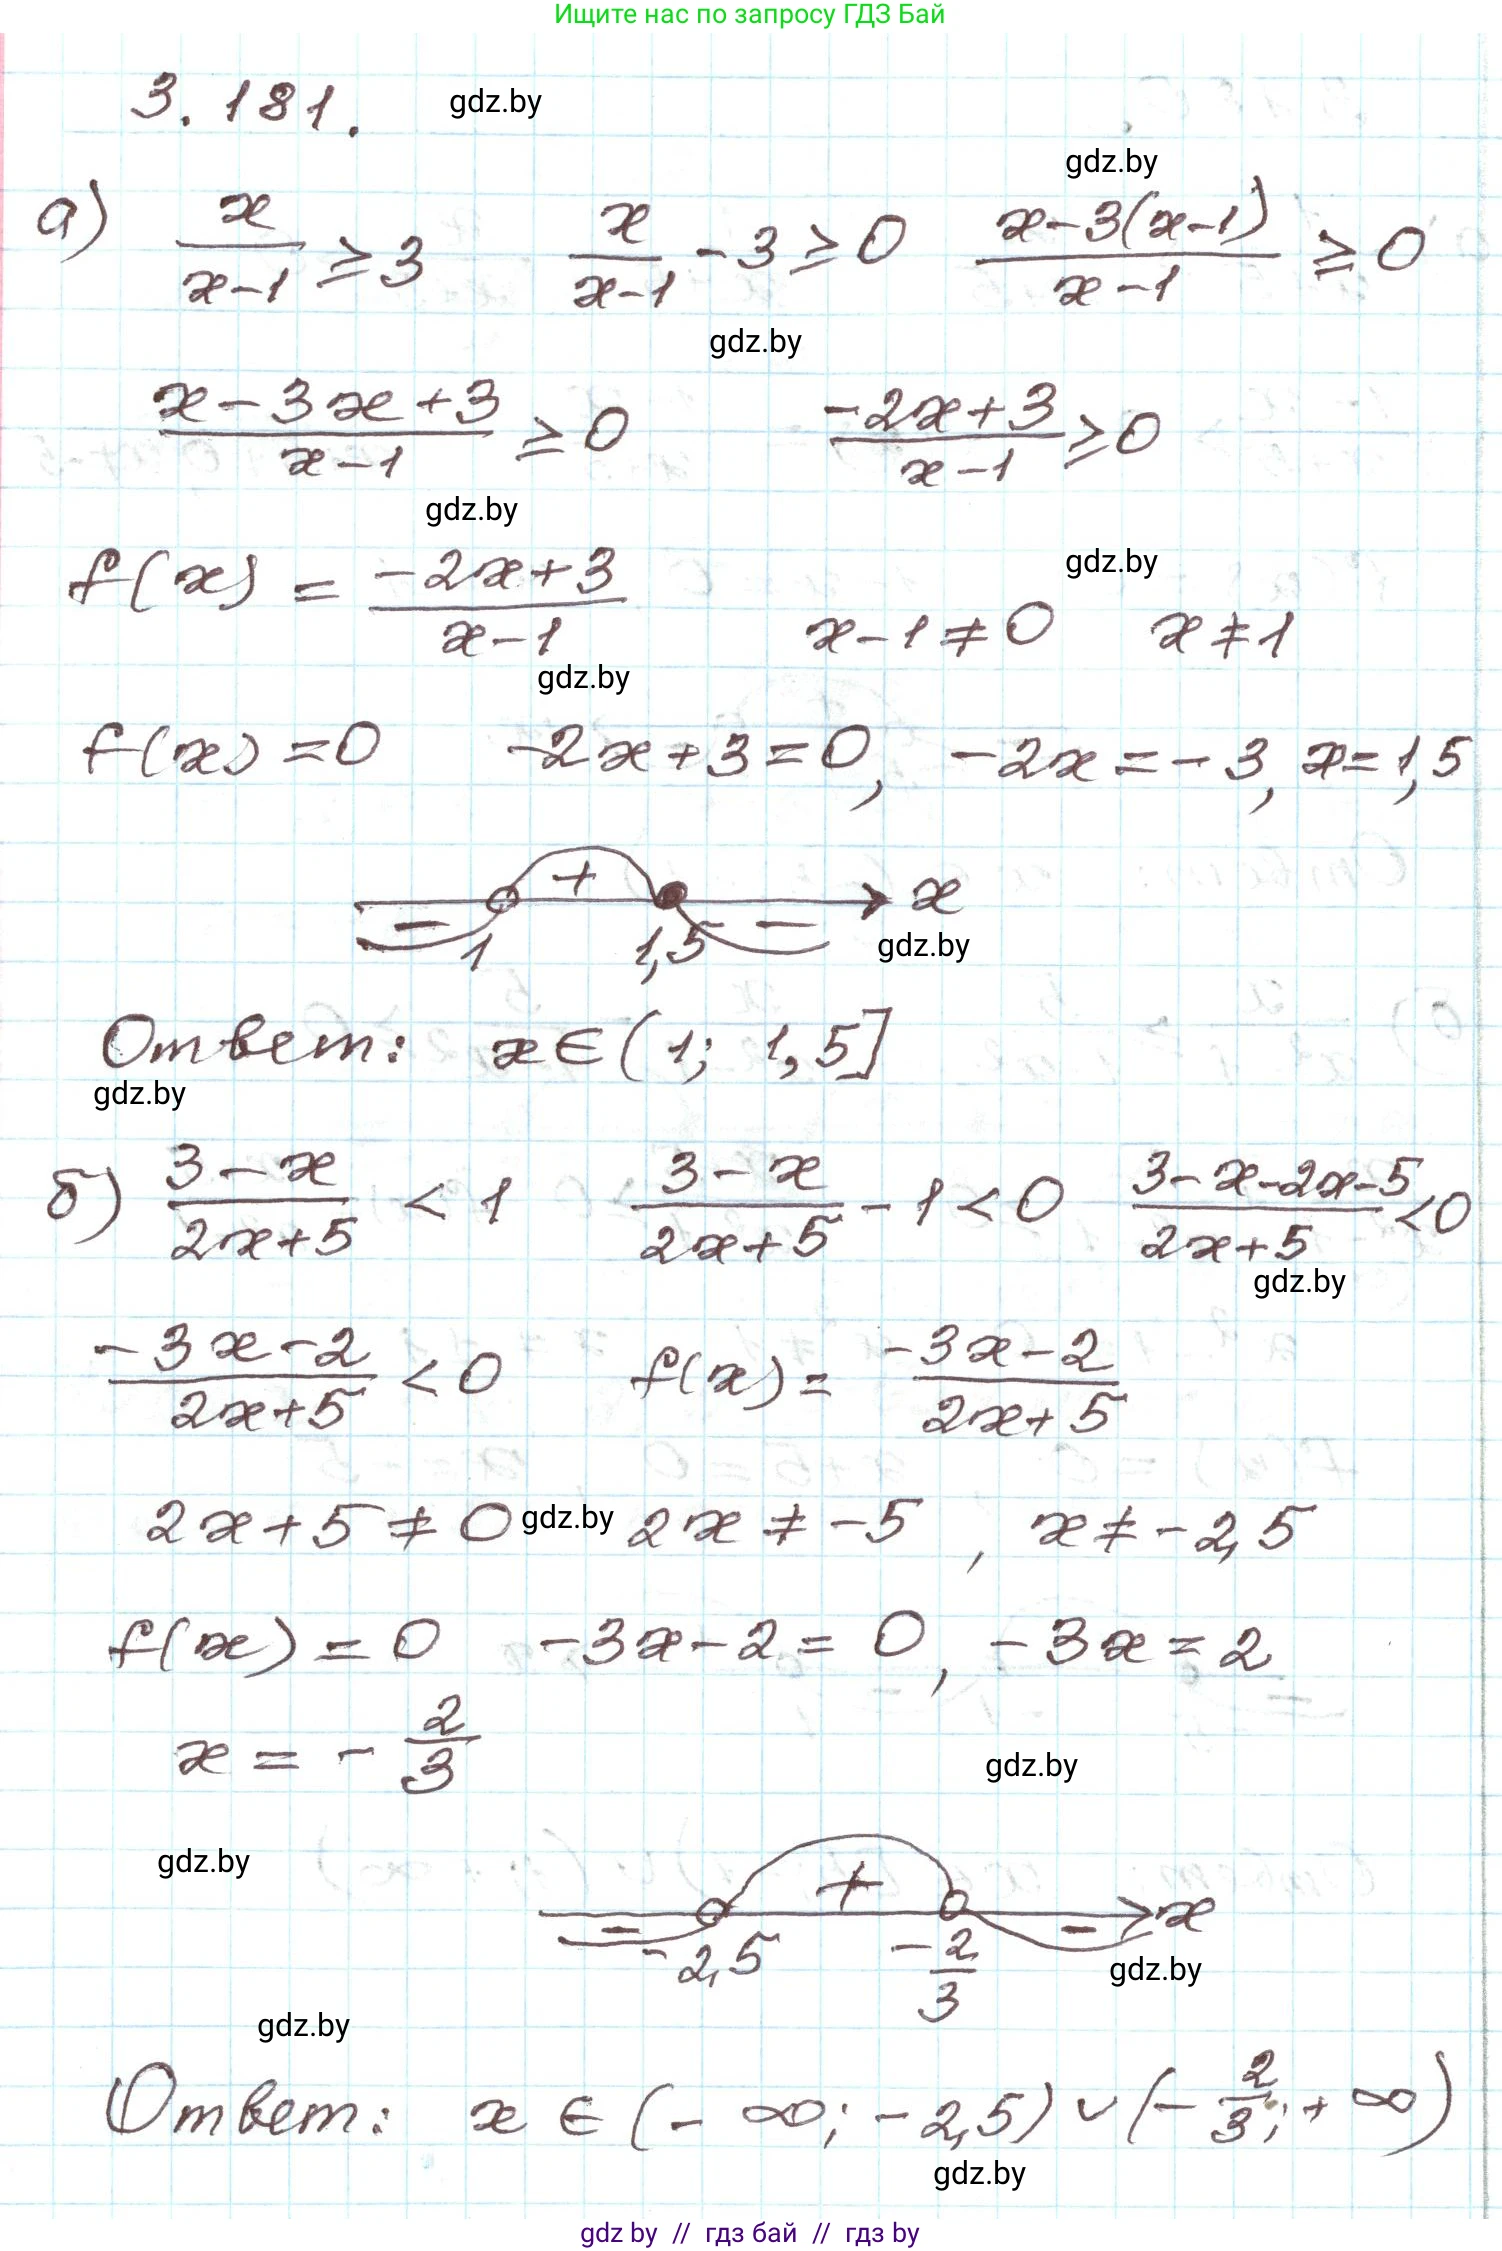 Ищите нас по запросу ГДЗ Бай
3.181. gdz.by
gdz.by
а) x/(x-1) ≥ 3 x/(x-1) - 3 ≥ 0 (x-3(x-1))/(x-1) ≥ 0
gdz.by
(x-3x+3)/(x-1) ≥ 0 (-2x+3)/(x-1) ≥ 0
gdz.by
gdz.by
f(x) = (-2x+3)/(x-1) x-1≠0 x≠1
gdz.by
f(x)=0 -2x+3=0, -2x=-3, x=1,5
- + - x
1 1,5 gdz.by
Ответ: x∈(1; 1,5]
gdz.by
б) (3-x)/(2x+5) < 1 (3-x)/(2x+5) - 1 < 0 (3-x-2x-5)/(2x+5) < 0
gdz.by
(-3x-2)/(2x+5) < 0 f(x) = (-3x-2)/(2x+5)
2x+5≠0 gdz.by 2x≠-5, x≠-2,5
f(x)=0 -3x-2=0, -3x=2
x = -2/3
gdz.by
gdz.by
- + - x
-2,5 -2/3 gdz.by
gdz.by
Ответ: x∈(-∞; -2,5) ∪ (-2/3; +∞)
gdz.by
gdz by // гдз бай // гдз by